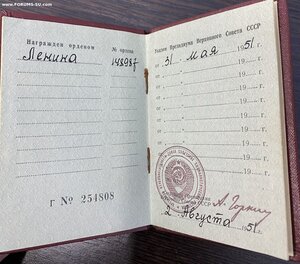 www.FORUMS-SU.com
Награжден орденом
№ ордена
Ленина
148987
г № 254808
Указом Президиума Верховного Совета СССР
от 31 мая 1951 г.
19 г.
19 г.
19 г.
19 г.
19 г.
19 г.
19 г.
СССР
А. Горкин
2 Августа 1951 г.